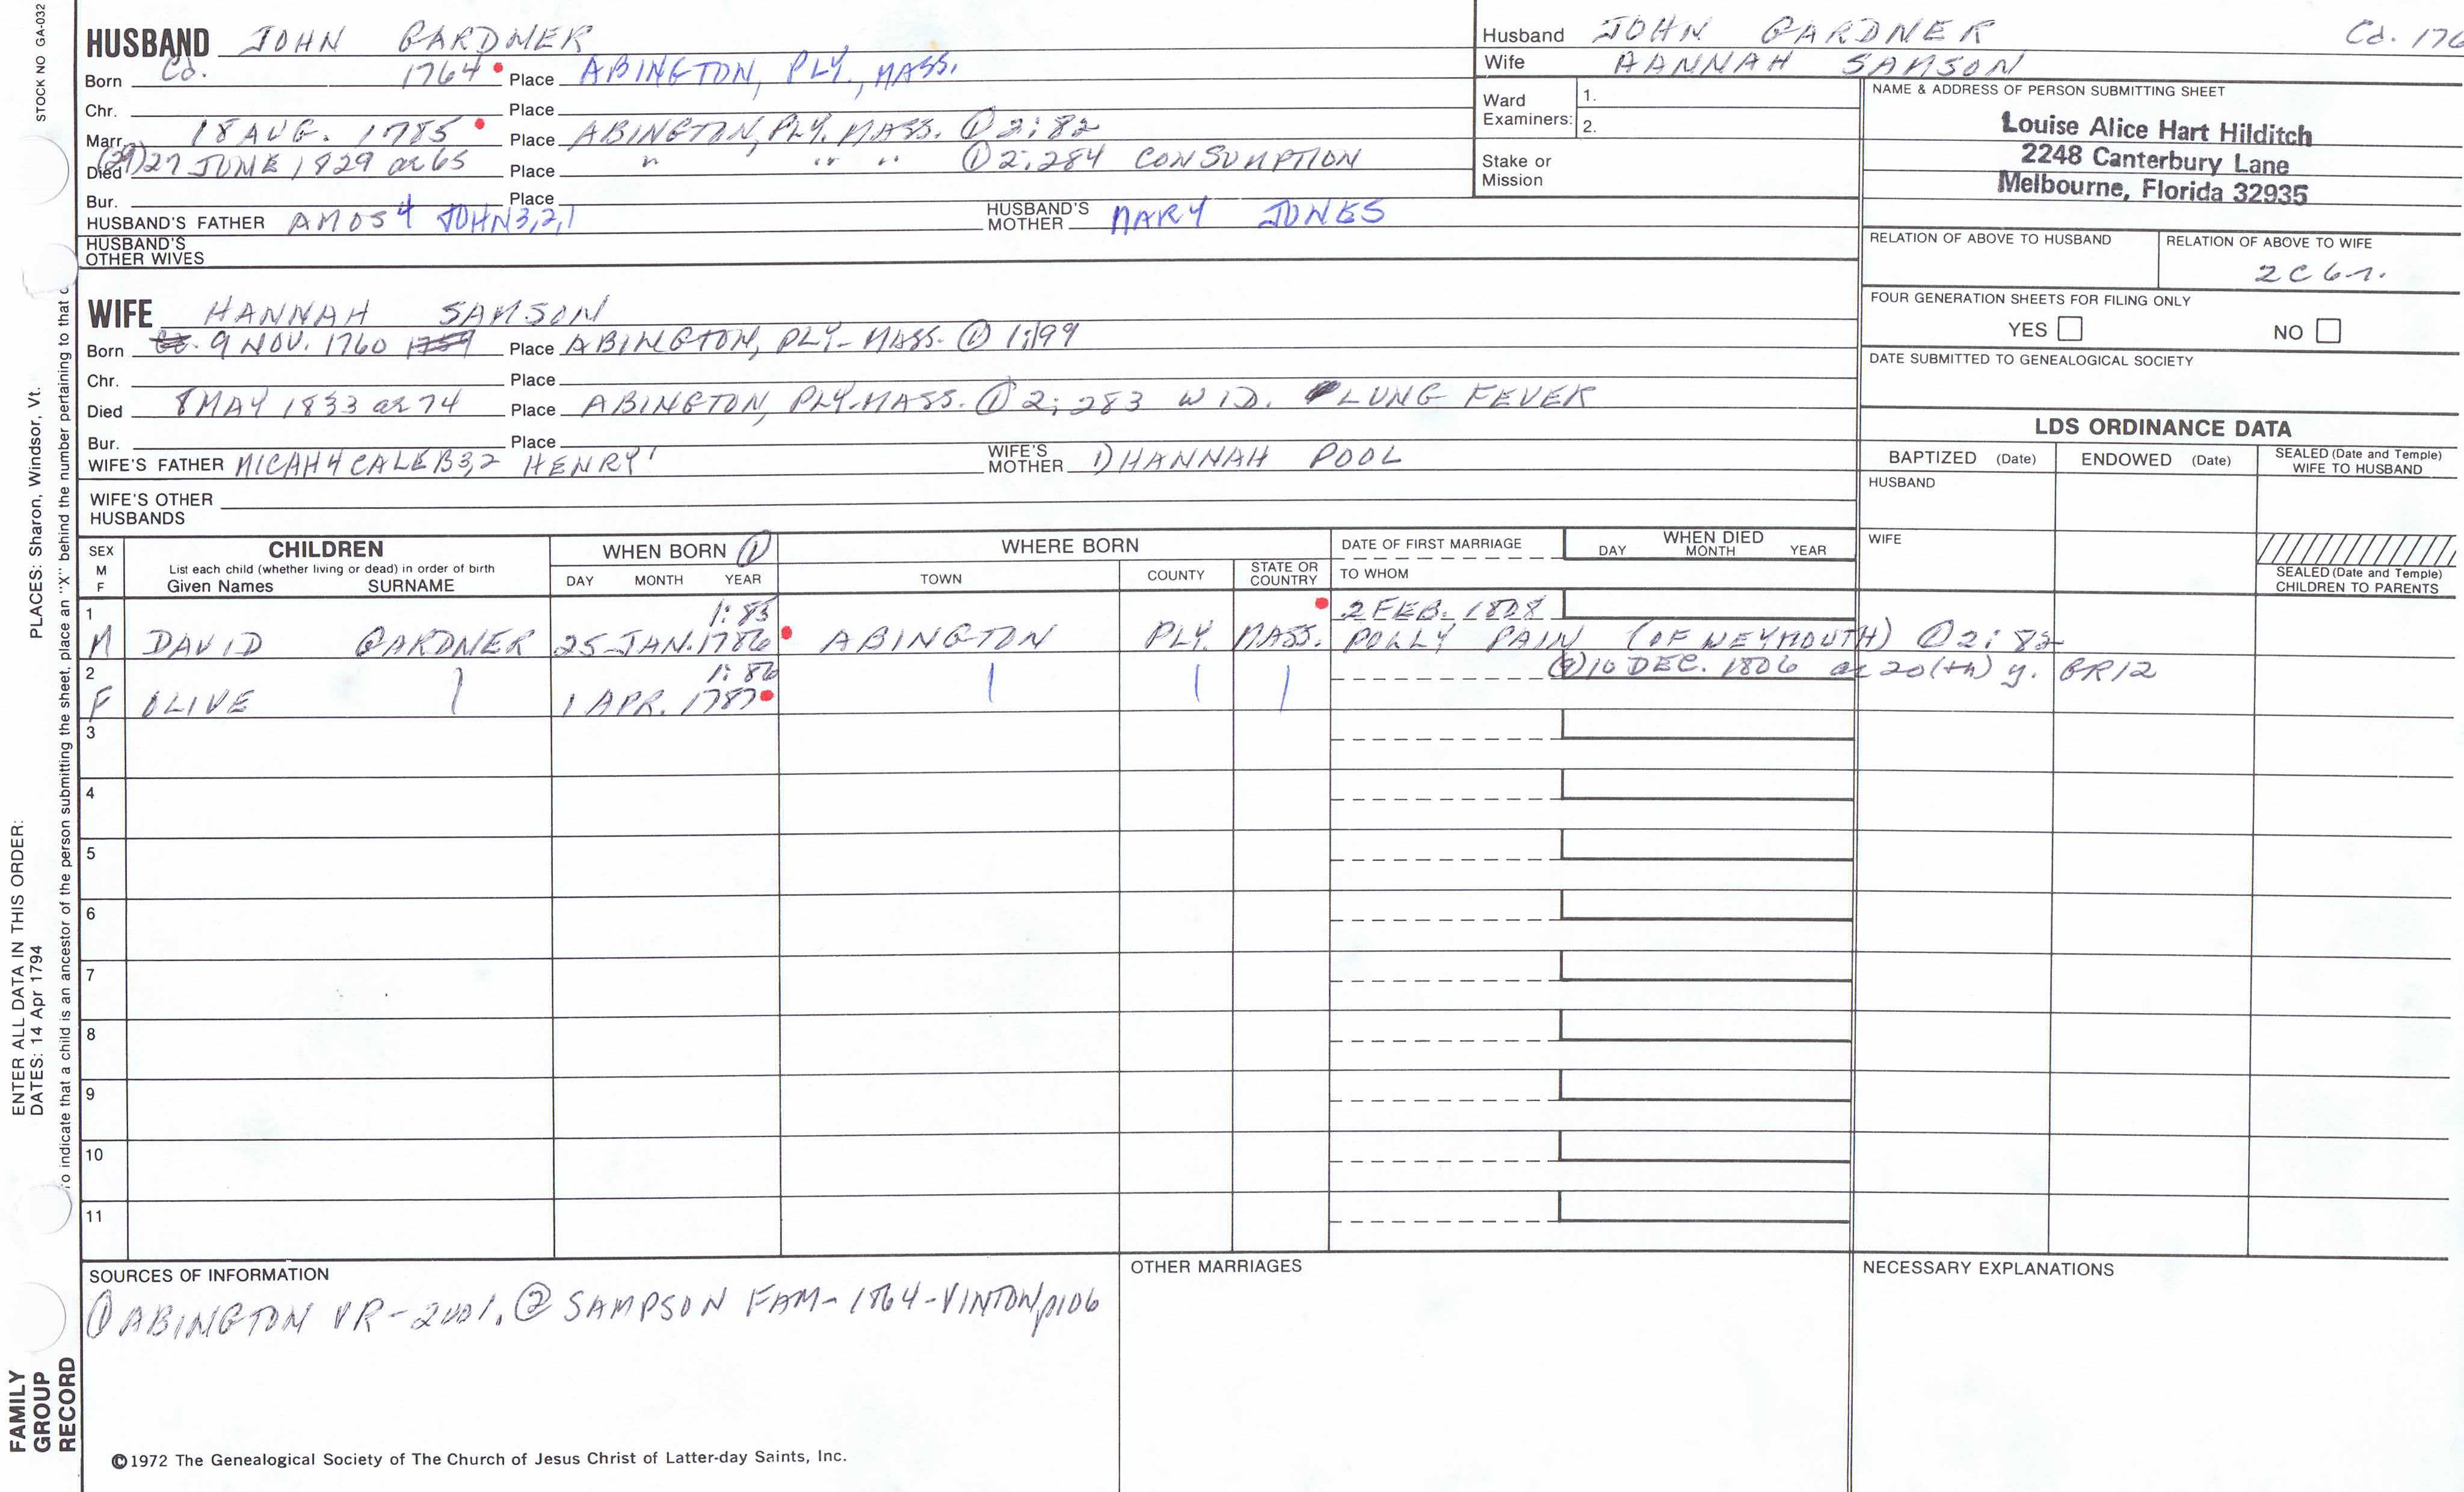 STOCK NO GA-032
HUSBAND JOHN GARDNER
Born Cd. 1764 Place ABINGTON, PLY., MASS.
Chr. Place
Marr. 18 AUG. 1785 Place ABINGTON, PLY. MASS. ① 2:82
Died (29) 27 JUNE 1829 ae 65 Place " " " ① 2:284 CONSUMPTION
Bur. Place
HUSBAND'S FATHER AMOS4 JOHN3,2,1 HUSBAND'S MOTHER MARY JONES
HUSBAND'S OTHER WIVES
Husband JOHN GARDNER Cd. 176
Wife HANNAH SAMSON
Ward Examiners: 1.
2.
Stake or Mission
NAME & ADDRESS OF PERSON SUBMITTING SHEET
Louise Alice Hart Hilditch
2248 Canterbury Lane
Melbourne, Florida 32935
RELATION OF ABOVE TO HUSBAND RELATION OF ABOVE TO WIFE
2C6r.
FOUR GENERATION SHEETS FOR FILING ONLY
YES NO
DATE SUBMITTED TO GENEALOGICAL SOCIETY
WIFE HANNAH SAMSON
Born 9 NOV. 1760 1759 Place ABINGTON, PLY-MASS. ① 1:199
Chr. Place
Died 8 MAY 1833 ae 74 Place ABINGTON, PLY-MASS. ① 2:283 WID. LUNG FEVER
Bur. Place
WIFE'S FATHER MICAH4 CALEB3,2 HENRY1 WIFE'S MOTHER 1) HANNAH POOL
WIFE'S OTHER HUSBANDS
LDS ORDINANCE DATA
BAPTIZED (Date) ENDOWED (Date) SEALED (Date and Temple) WIFE TO HUSBAND
HUSBAND
WIFE
SEALED (Date and Temple) CHILDREN TO PARENTS
SEX M F CHILDREN List each child (whether living or dead) in order of birth Given Names SURNAME
WHEN BORN ① DAY MONTH YEAR
WHERE BORN TOWN COUNTY STATE OR COUNTRY
DATE OF FIRST MARRIAGE TO WHOM
WHEN DIED DAY MONTH YEAR
1 1:85 2 FEB. 1808
M DAVID GARDNER 25 JAN. 1786 ABINGTON PLY. MASS. POLLY PAIN (OF WEYMOUTH) ① 2:82
2 1:86 (9) 10 DEC. 1806 ae 20(th) y. GR12
F OLIVE 1 APR. 1787
3
4
5
6
7
8
9
10
11
SOURCES OF INFORMATION
① ABINGTON VR-2vol. ② SAMPSON FAM-1864-VINTON, p106
OTHER MARRIAGES
NECESSARY EXPLANATIONS
©1972 The Genealogical Society of The Church of Jesus Christ of Latter-day Saints, Inc.
ENTER ALL DATA IN THIS ORDER:
DATES: 14 Apr 1794 PLACES: Sharon, Windsor, Vt.
To indicate that a child is an ancestor of the person submitting the sheet, place an "X" behind the number pertaining to that c
FAMILY
GROUP
RECORD